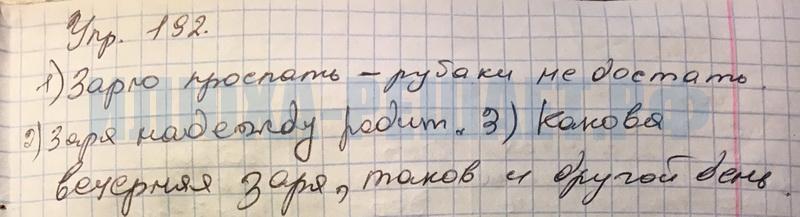 Упр. 192.
1) Зарю проспать – рубахи не достать.
2) Заря надежду родит. 3) Какова
вечерняя заря, таков и другой день.